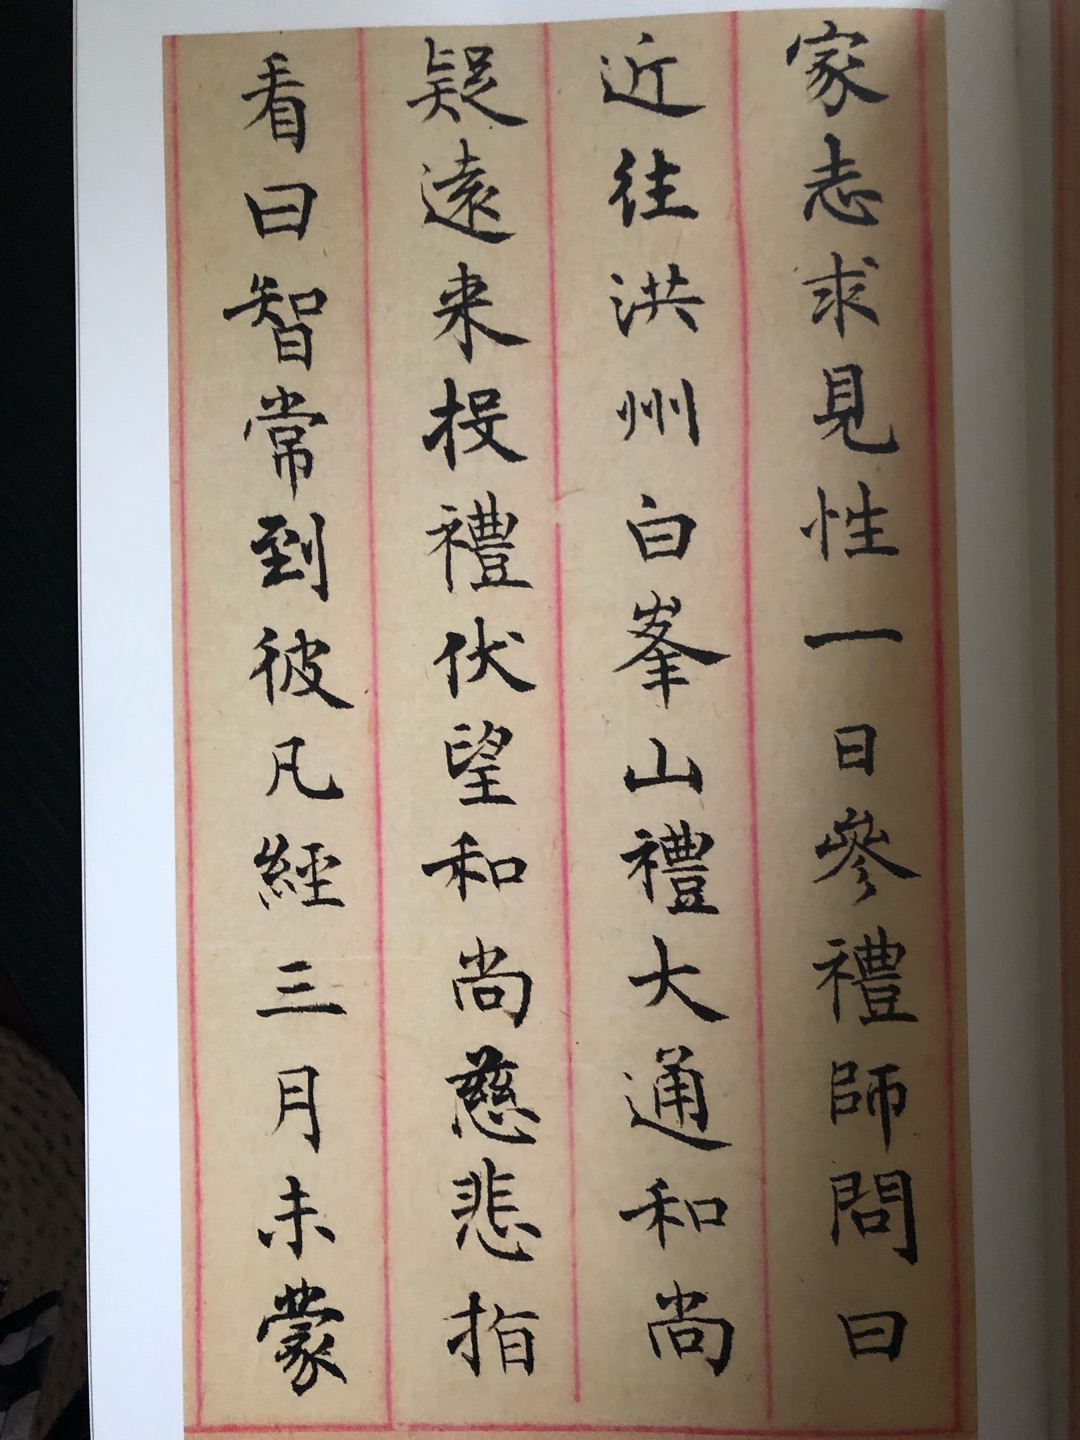 家志求見性一日參禮師問曰
近往洪州白峯山禮大通和尚
疑遠来投禮伏望和尚慈悲指
看曰智常到彼凡經三月未蒙